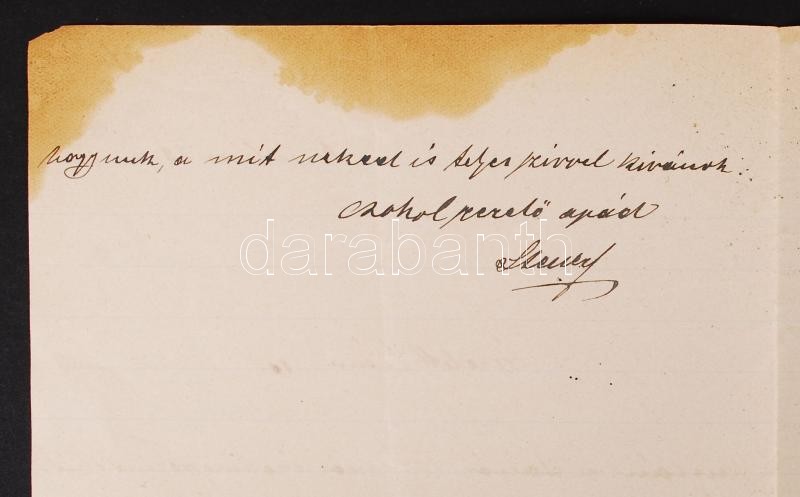 vagyunk, a mit neked is teljes szivvel kivánok.
csókol szerető apád
darabanth